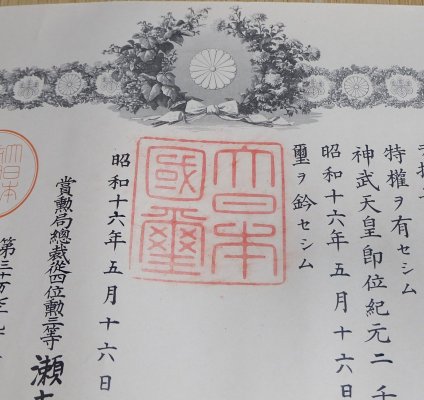 特權ヲ有セシム
神武天皇即位紀元二千
昭和十六年五月十六
璽ヲ鈐セシム
大日本
國璽
昭和十六年五月十六日
賞勲局總裁從四位勲三等
瀬
大日本
第三十